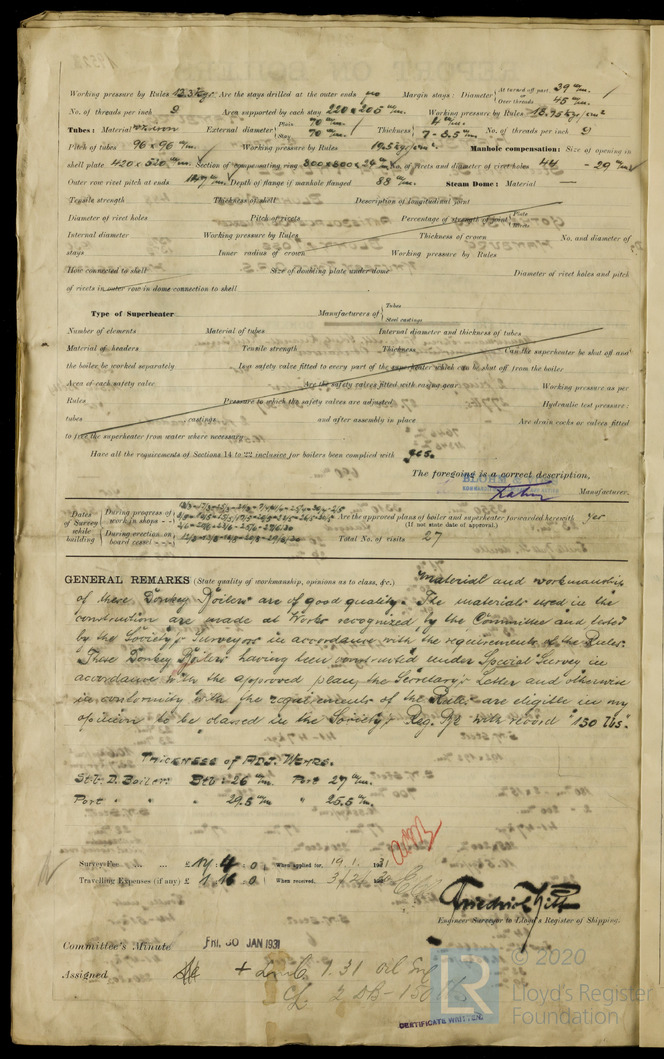 Working pressure by Rules 12.3 Kgr. Are the stays drilled at the outer ends no Margin stays: Diameter { At turned off part, 39 m/m. or Over threads 45 m/m.
No. of threads per inch 9 Area supported by each stay 220 x 205 m/m Working pressure by Rules 13.75 kg/cm²
Tubes: Material iron External diameter { Plain 70 m/m. Stay 70 m/m. Thickness { 4 m/m. 7 - 8.5 m/m. No. of threads per inch 9
Pitch of tubes 96 x 96 m/m. Working pressure by Rules 19.5 kg/cm². Manhole compensation: Size of opening in
shell plate 420 x 520 m/m. Section of compensating ring 800 x 800 x 24 m/m No. of rivets and diameter of rivet holes 44 - 29 m/m
Outer row rivet pitch at ends m/m. Depth of flange if manhole flanged 88 m/m. Steam Dome: Material —
Tensile strength Thickness of shell Description of longitudinal joint
Diameter of rivet holes Pitch of rivets Percentage of strength of joint { Plate Rivets
Internal diameter Working pressure by Rules Thickness of crown No. and diameter of
stays Inner radius of crown Working pressure by Rules
How connected to shell Size of doubling plate under dome Diameter of rivet holes and pitch
of rivets in outer row in dome connection to shell
Type of Superheater Manufacturers of { Tubes Steel castings
Number of elements Material of tubes Internal diameter and thickness of tubes
Material of headers Tensile strength Thickness Can the superheater be shut off and
the boiler be worked separately Is a safety valve fitted to every part of the superheater which can be shut off from the boiler
Area of each safety valve Are the safety valves fitted with easing gear Working pressure as per
Rules Pressure to which the safety valves are adjusted Hydraulic test pressure:
tubes castings and after assembly in place Are drain cocks or valves fitted
to free the superheater from water where necessary
Have all the requirements of Sections 14 to 22 inclusive for boilers been complied with yes.
The foregoing is a correct description,
BLOHM
Manufacturer.
Dates of Survey while building { During progress of work in shops - - During erection on board vessel - - -
Are the approved plans of boiler and superheater forwarded herewith yes
(If not state date of approval.)
Total No. of visits 27
GENERAL REMARKS (State quality of workmanship, opinions as to class, &c.) Material and workmanship
of these Donkey Boilers are of good quality. The materials used in the
construction are made at Works recognized by the Committee and tested
by the Society's Surveyors in accordance with the requirements of the Rules.
These Donkey Boilers having been constructed under Special Survey in
accordance with the approved plan, the Secretary's Letter and otherwise
in conformity with the requirements of the Rules are eligible in my
opinion to be classed in the Society's Reg. Bk with record "150 lbs".
Thickness of Adj. Wehrs.
Stb: D. Boiler: Stb: 26 m/m. Port 27 m/m.
Port " " " 29.5 m/m " 25.5 m/m.
Survey Fee ... ... £ 14 : 4 : 0 When applied for, 19.1.1931
Travelling Expenses (if any) £ 1 : 16 : 0 When received,
Engineer Surveyor to Lloyd's Register of Shipping.
Committee's Minute FRI. 30 JAN 1931
Assigned + L.M.C. 1.31 Oil Eng
2 DB - 150 lbs
CERTIFICATE WRITTEN.
LR
© 2020
Lloyd's Register
Foundation